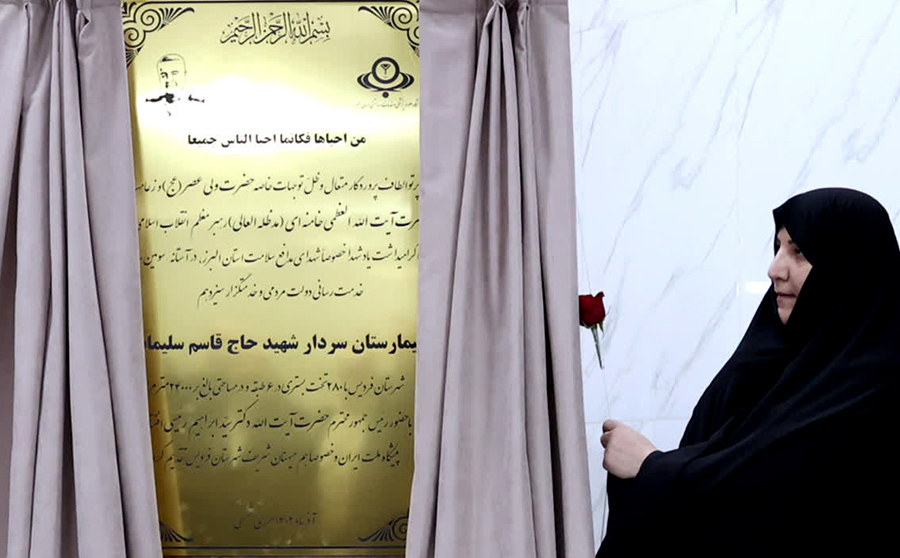 بسم الله الرحمن الرحیم
من احیاها فکانما احیا الناس جمیعا
پرتو الطاف پروردگار متعال و ظل توجهات خاصه حضرت ولی عصر (عج) و زعامت
حضرت آیت الله العظمی خامنه ای (مدظله العالی) رهبر معظم انقلاب اسلامی
گرامیداشت یاد شهدا خصوصاً شهدای مدافع سلامت استان البرز، در آستانه سومین
خدمت رسانی دولت مردمی و خدمتگزار سیزدهم
بیمارستان سردار شهید حاج قاسم سلیمانی
شهرستان فردیس با ۲۸۰ تخت بستری در ۶ طبقه و در مساحتی بالغ بر ۲۴۰۰۰ متر
با حضور رئیس جمهور محترم حضرت آیت الله دکتر سید ابراهیم رئیسی
پیشگاه ملت ایران و خصوصا هم میهنان شریف شهرستان فردیس تقدیم
آذر ماه ۱۴۰۲